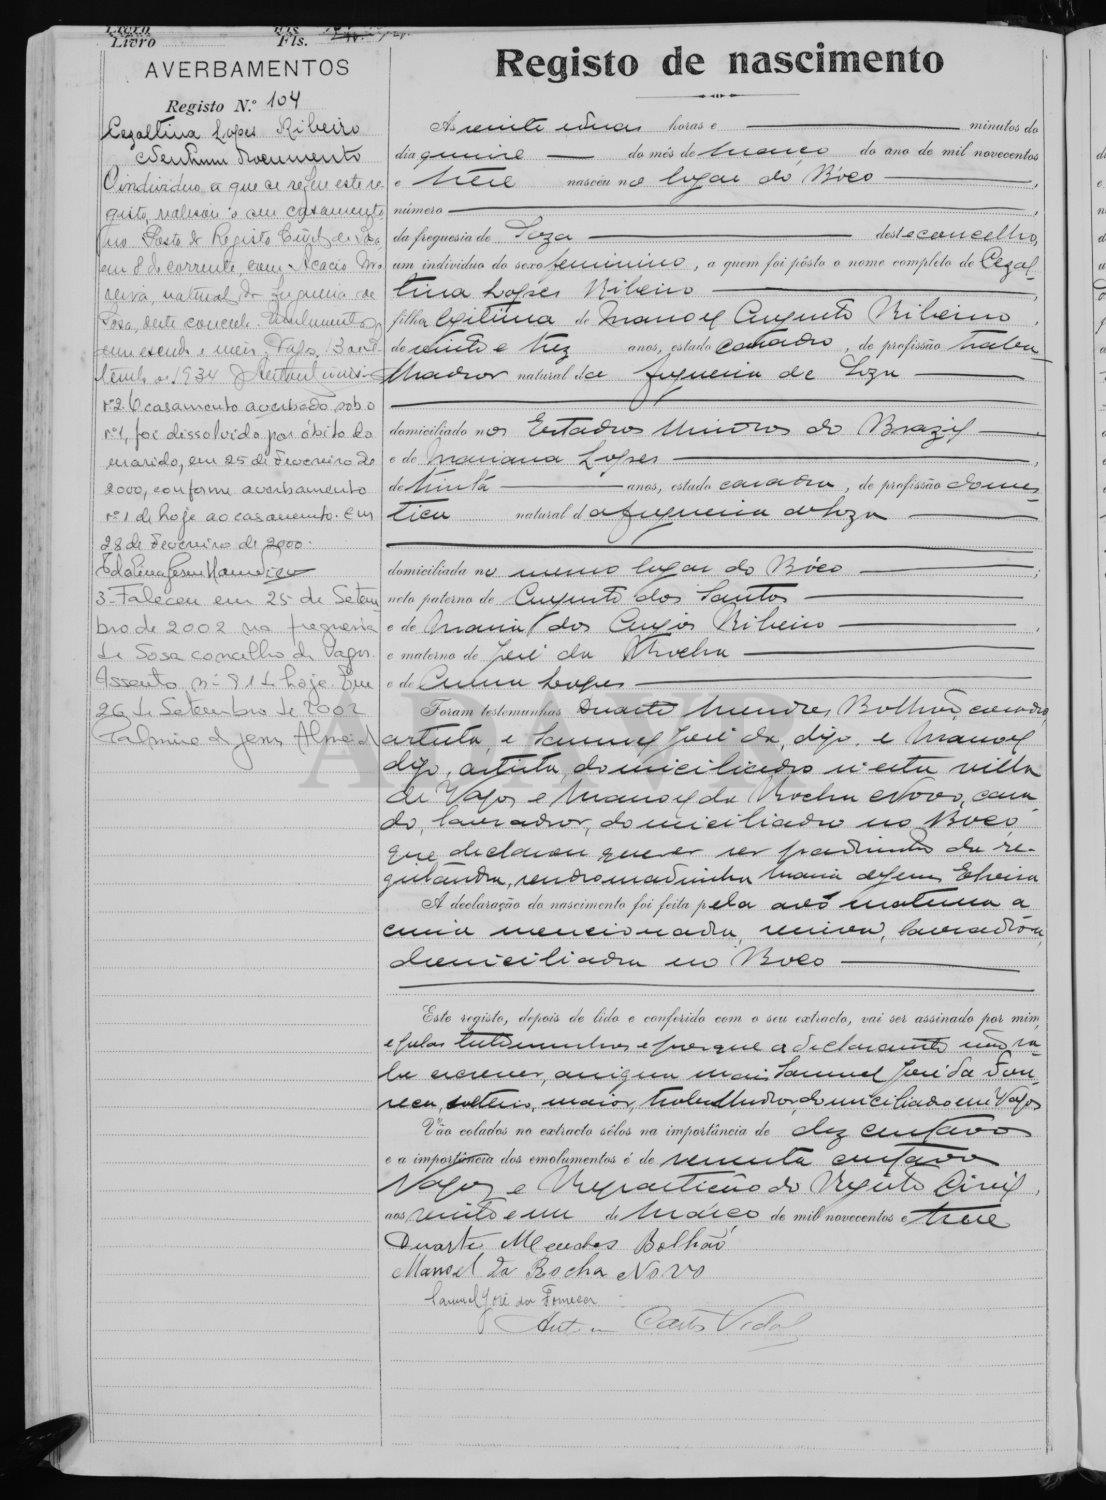 Livro Fls.
Livro Fls.
AVERBAMENTOS
Registo N.º 104
Cezaltina Lopes Ribeiro
Nenhum documento
O individuo a que se refere este re-
gisto, realisou o seu casamento
no Posto de Registo Civil de Soza
em 8 do corrente, com Acacio Mo-
reira, natural da freguesia de
Soza, deste concelho. Emolumentos
um escudo e meio. Vagos, 13 de
1934
nº2. O casamento averbado sob o
nº1, foi dissolvido por óbito do
marido, em 25 de Fevereiro de
2000, conforme averbamento
nº1 de hoje ao casamento. Em
28 de Fevereiro de 2000.
3- Faleceu em 25 de Setem
bro de 2002 na freguesia
de Sosa concelho de Vagos.
Assento nº 81 de hoje. Em
26 de Setembro de 2002
Palmira de Jesus Almeida
Registo de nascimento
Ás vinte e duas horas e minutos do
dia quinze do mês de Março do ano de mil novecentos
e treze nasceu no logar do Bôco
número
da freguesia de Soza deste concelho,
um individuo do sexo feminino, a quem foi pôsto o nome completo de Cezal-
tina Lopes Ribeiro
filha legitima de Manoel Augusto Ribeiro,
de vinte e trez anos, estado casado, de profissão traba-
lhador natural da freguesia de Soza
domiciliado nos Estados Unidos do Brazil
e de Mariana Lopes
de trinta anos, estado casada, de profissão domes-
tica natural da freguesia de Soza
domiciliada no mesmo logar do Bôco
neto paterno de Augusto dos Santos
e de Maria dos Anjos Ribeiro
e materno de José da Rocha
e de Lopes
Foram testemunhas Duarte Mendes Bolhão, casado,
artista, e Samuel José da, digo, e Manoel
digo, artista, domiciliado n'esta villa
de Vagos e Manoel da Rocha Novo, casa-
do, lavrador, domiciliado no Boco
que declarou querer ser padrinho da re-
gistanda, sendo madrinha Maria de Jesus
A declaração do nascimento foi feita pela avó materna a
cima mencionada, viuva, lavradôra,
domiciliada no Boco
Este registo, depois de lido e conferido com o seu extracto, vai ser assinado por mim,
e pelas testemunhas e porque a declarante não sa-
be escrever, assigna mais Samuel José da Fon-
seca, solteiro, maior, trabalhador, domiciliado em Vagos
Vão colados no extracto sêlos na importância de dez centavos
e a importência dos emolumentos é de centavos
Vagos e Repartição do Registo Civil,
aos vinte e um de Março de mil novecentos e treze
Duarte Mendes Bolhão
Manoel da Rocha Novo
Samuel José da Fonseca
Carlos Vidal
ADAVR